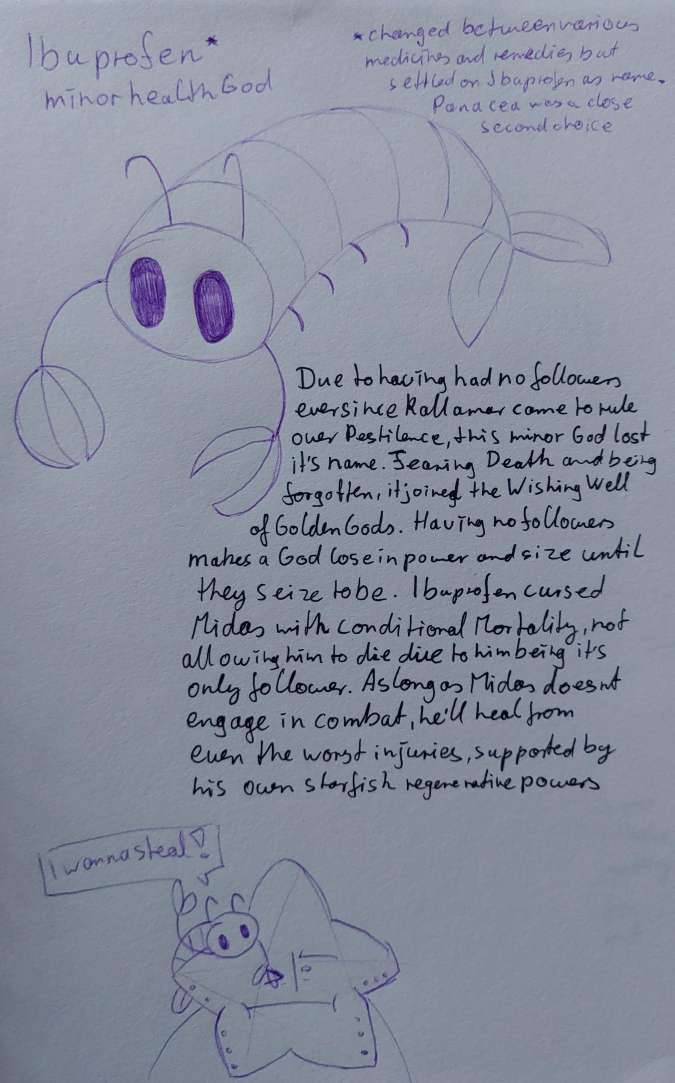 Ibuprofen*
minor health God
*changed between various
medicines and remedies but
settled on Ibuprofen as name.
Panacea was a close
second choice
Due to having had no followers
eversince Kallamar came to rule
over Pestilence, this minor God lost
it's name. Fearing Death and being
forgotten, it joined the Wishing Well
of Golden Gods. Having no followers
makes a God lose in power and size until
they seize to be. Ibuprofen cursed
Midas with conditional Mortality, not
allowing him to die due to him being it's
only follower. As long as Midas doesnt
engage in combat, he'll heal from
even the worst injuries, supported by
his own starfish regenerative powers
I wanna steal!